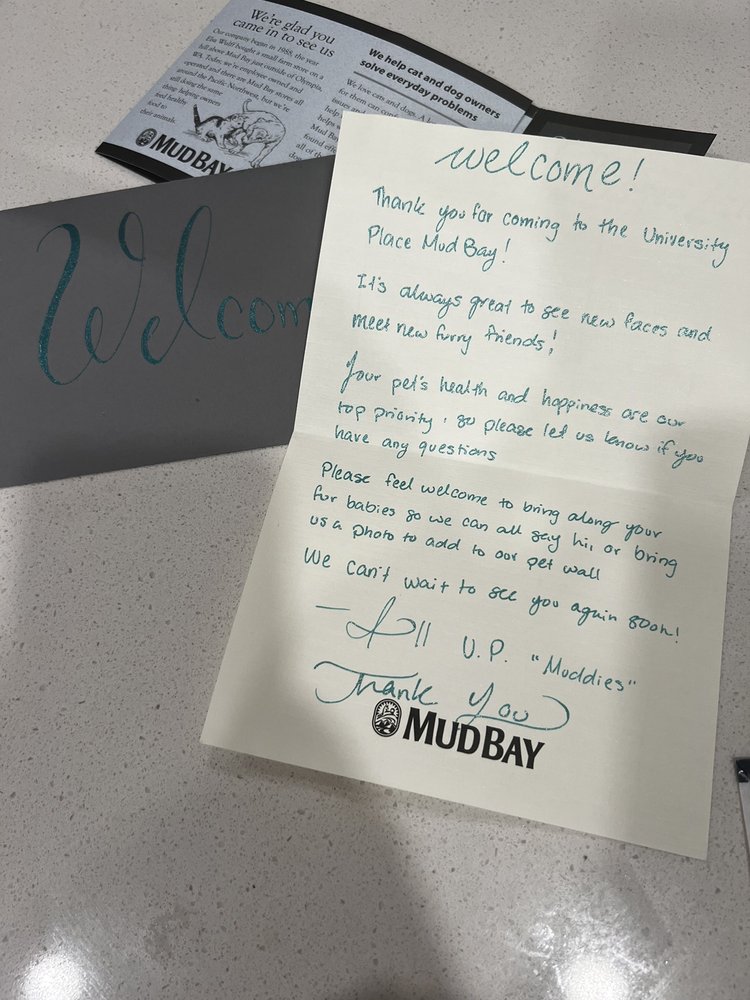 We're glad you
came in to see us
Our company began in 1988, the year
Elsa Wulff bought a small farm store on a
hill above Mud Bay just outside of Olympia,
WA. Today, we're employee owned and
operated and there are Mud Bay stores all
around the Pacific Northwest, but we're
still doing the same
thing: helping owners
feed healthy
food to
their animals.
MUD BAY
We help cat and dog owners
solve everyday problems
We love cats and dogs. A
for them can
issues
help
helps
Mud Bay
found
all of the
Welcom
welcome!
Thank you for coming to the University
Place Mud Bay!
It's always great to see new faces and
meet new furry friends!
Your pet's health and happiness are our
top priority, so please let us know if you
have any questions
Please feel welcome to bring along your
fur babies so we can all say hi, or bring
us a photo to add to our pet wall
We can't wait to see you again soon!
U.P. "Muddies"
Thank You
MUD BAY